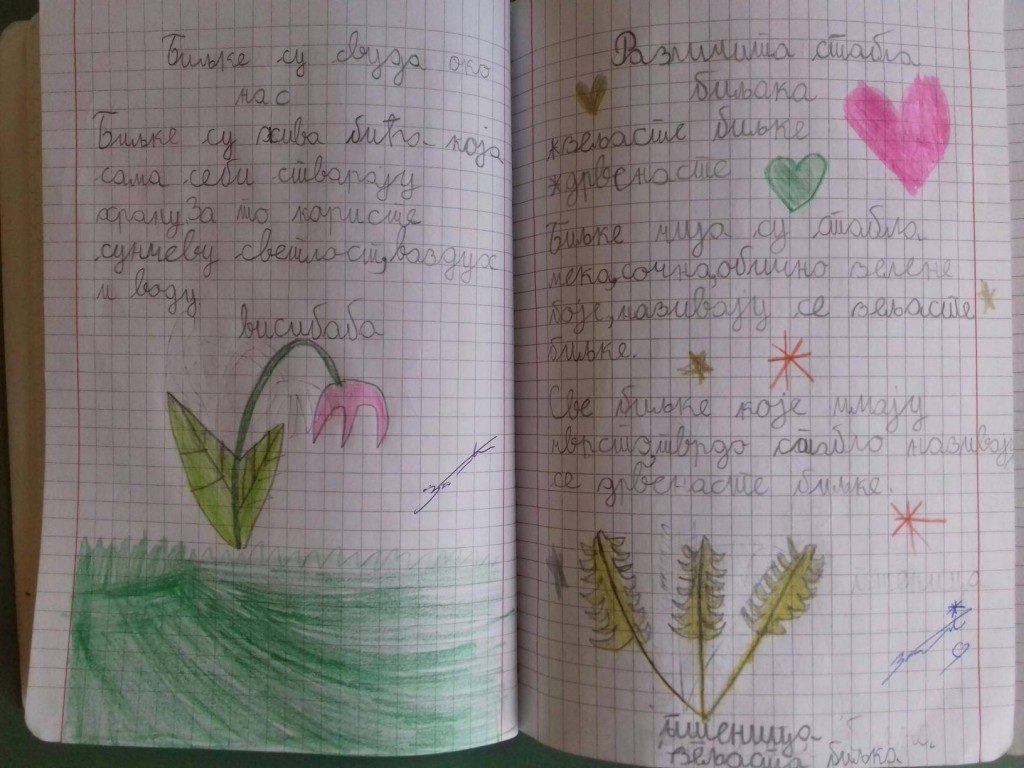 Биљке су свуда око
нас
Биљке су жива бића која
сама себи стварају
храну. За то користе
сунчеву светлост, ваздух
и воду
висибаба
Различита стабла
биљака
зељасте биљке
дрвенасте
Биљке чија су стабла
мека, сочна, обично зелене
боје, називају се зељасте
биљке.
Све биљке које имају
чврсто, тврдо стабло називају
се дрвенасте биљке.
пшеница
пшеница
зељаста биљка